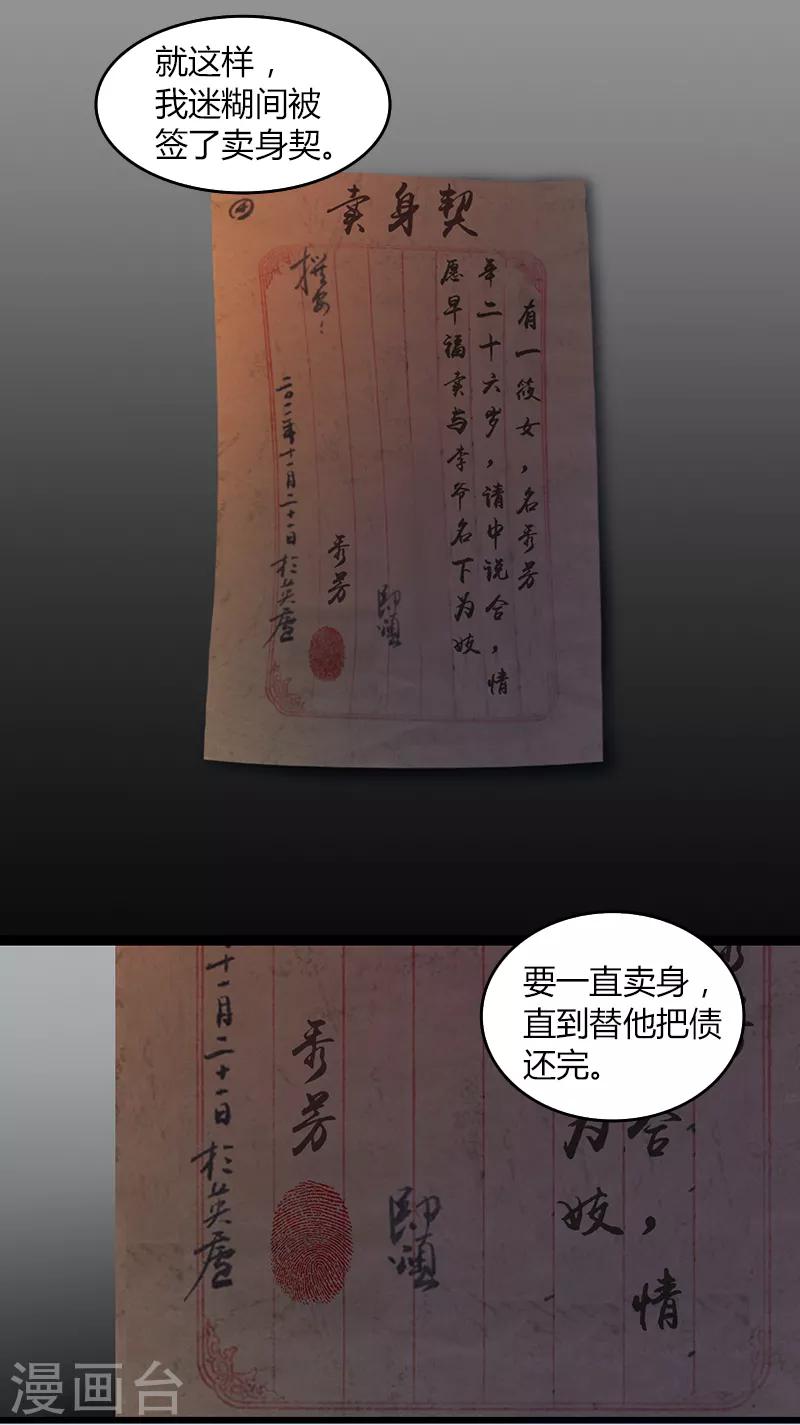 就这样，
我迷糊间被
签了卖身契。
④
卖身契
有一筱女，名秀芳
年二十六岁，请中说合，情
愿早福卖与李爷名下为妓
秀芳
二〇一一年十一月二十一日於英庐
要一直卖身，
直到替他把债
还完。
十一月二十一日於英庐
秀芳
合，情
为妓
漫画台